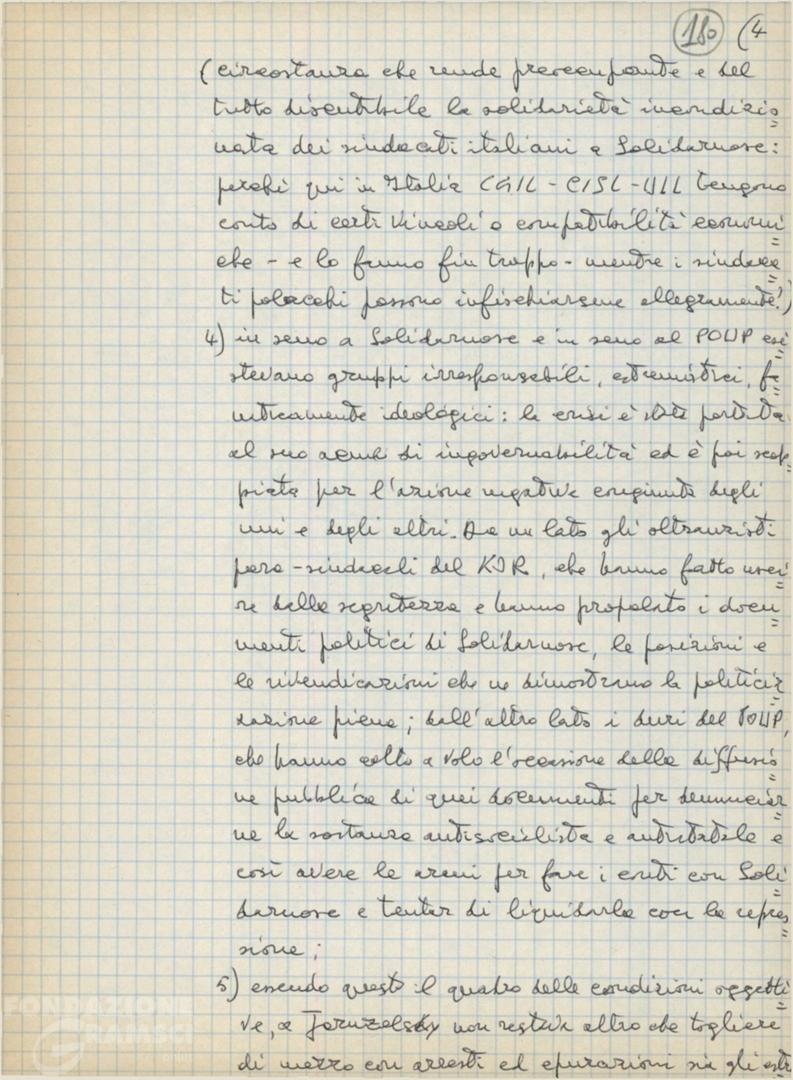 180 (4
(circostanza che rende preoccupante e del
tutto discutibile la solidarietà incondizio=
nata dei sindacati italiani a Solidarnosc:
perché qui in Italia CGIL-CISL-UIL tengono
conto di certi vincoli o compatibilità economi=
che - e lo fanno fin troppo - mentre i sindaca=
ti polacchi possono infischiarsene allegramente!)
4) in seno a Solidarnosc e in seno al POUP esi=
stevano gruppi irresponsabili, estremistici, fa=
naticamente ideologici: la crisi è stata portata
al suo acme di ingovernabilità ed è poi scop=
piata per l'azione negativa congiunta degli
uni e degli altri. Da un lato gli oltranzisti
para-sindacali del KOR, che hanno fatto usci=
re dalla segretezza e hanno propalato i docu=
menti politici di Solidarnosc, le posizioni e
le rivendicazioni che ne dimostrano la politiciz=
zazione piena; dall'altro lato i duri del POUP,
che hanno colto a volo l'occasione della diffusio=
ne pubblica di quei documenti per denunciar=
ne la sostanza antisocialista e antistatale e
così avere le armi per fare i conti con Soli=
darnosc e tentar di liquidarla con la repres=
sione;
5) essendo questo il quadro delle condizioni oggetti=
ve, a Jaruzelsky non restava altro che togliere
di mezzo con arresti ed epurazioni sia gli estr
FONDAZIONE
GRAMSCI